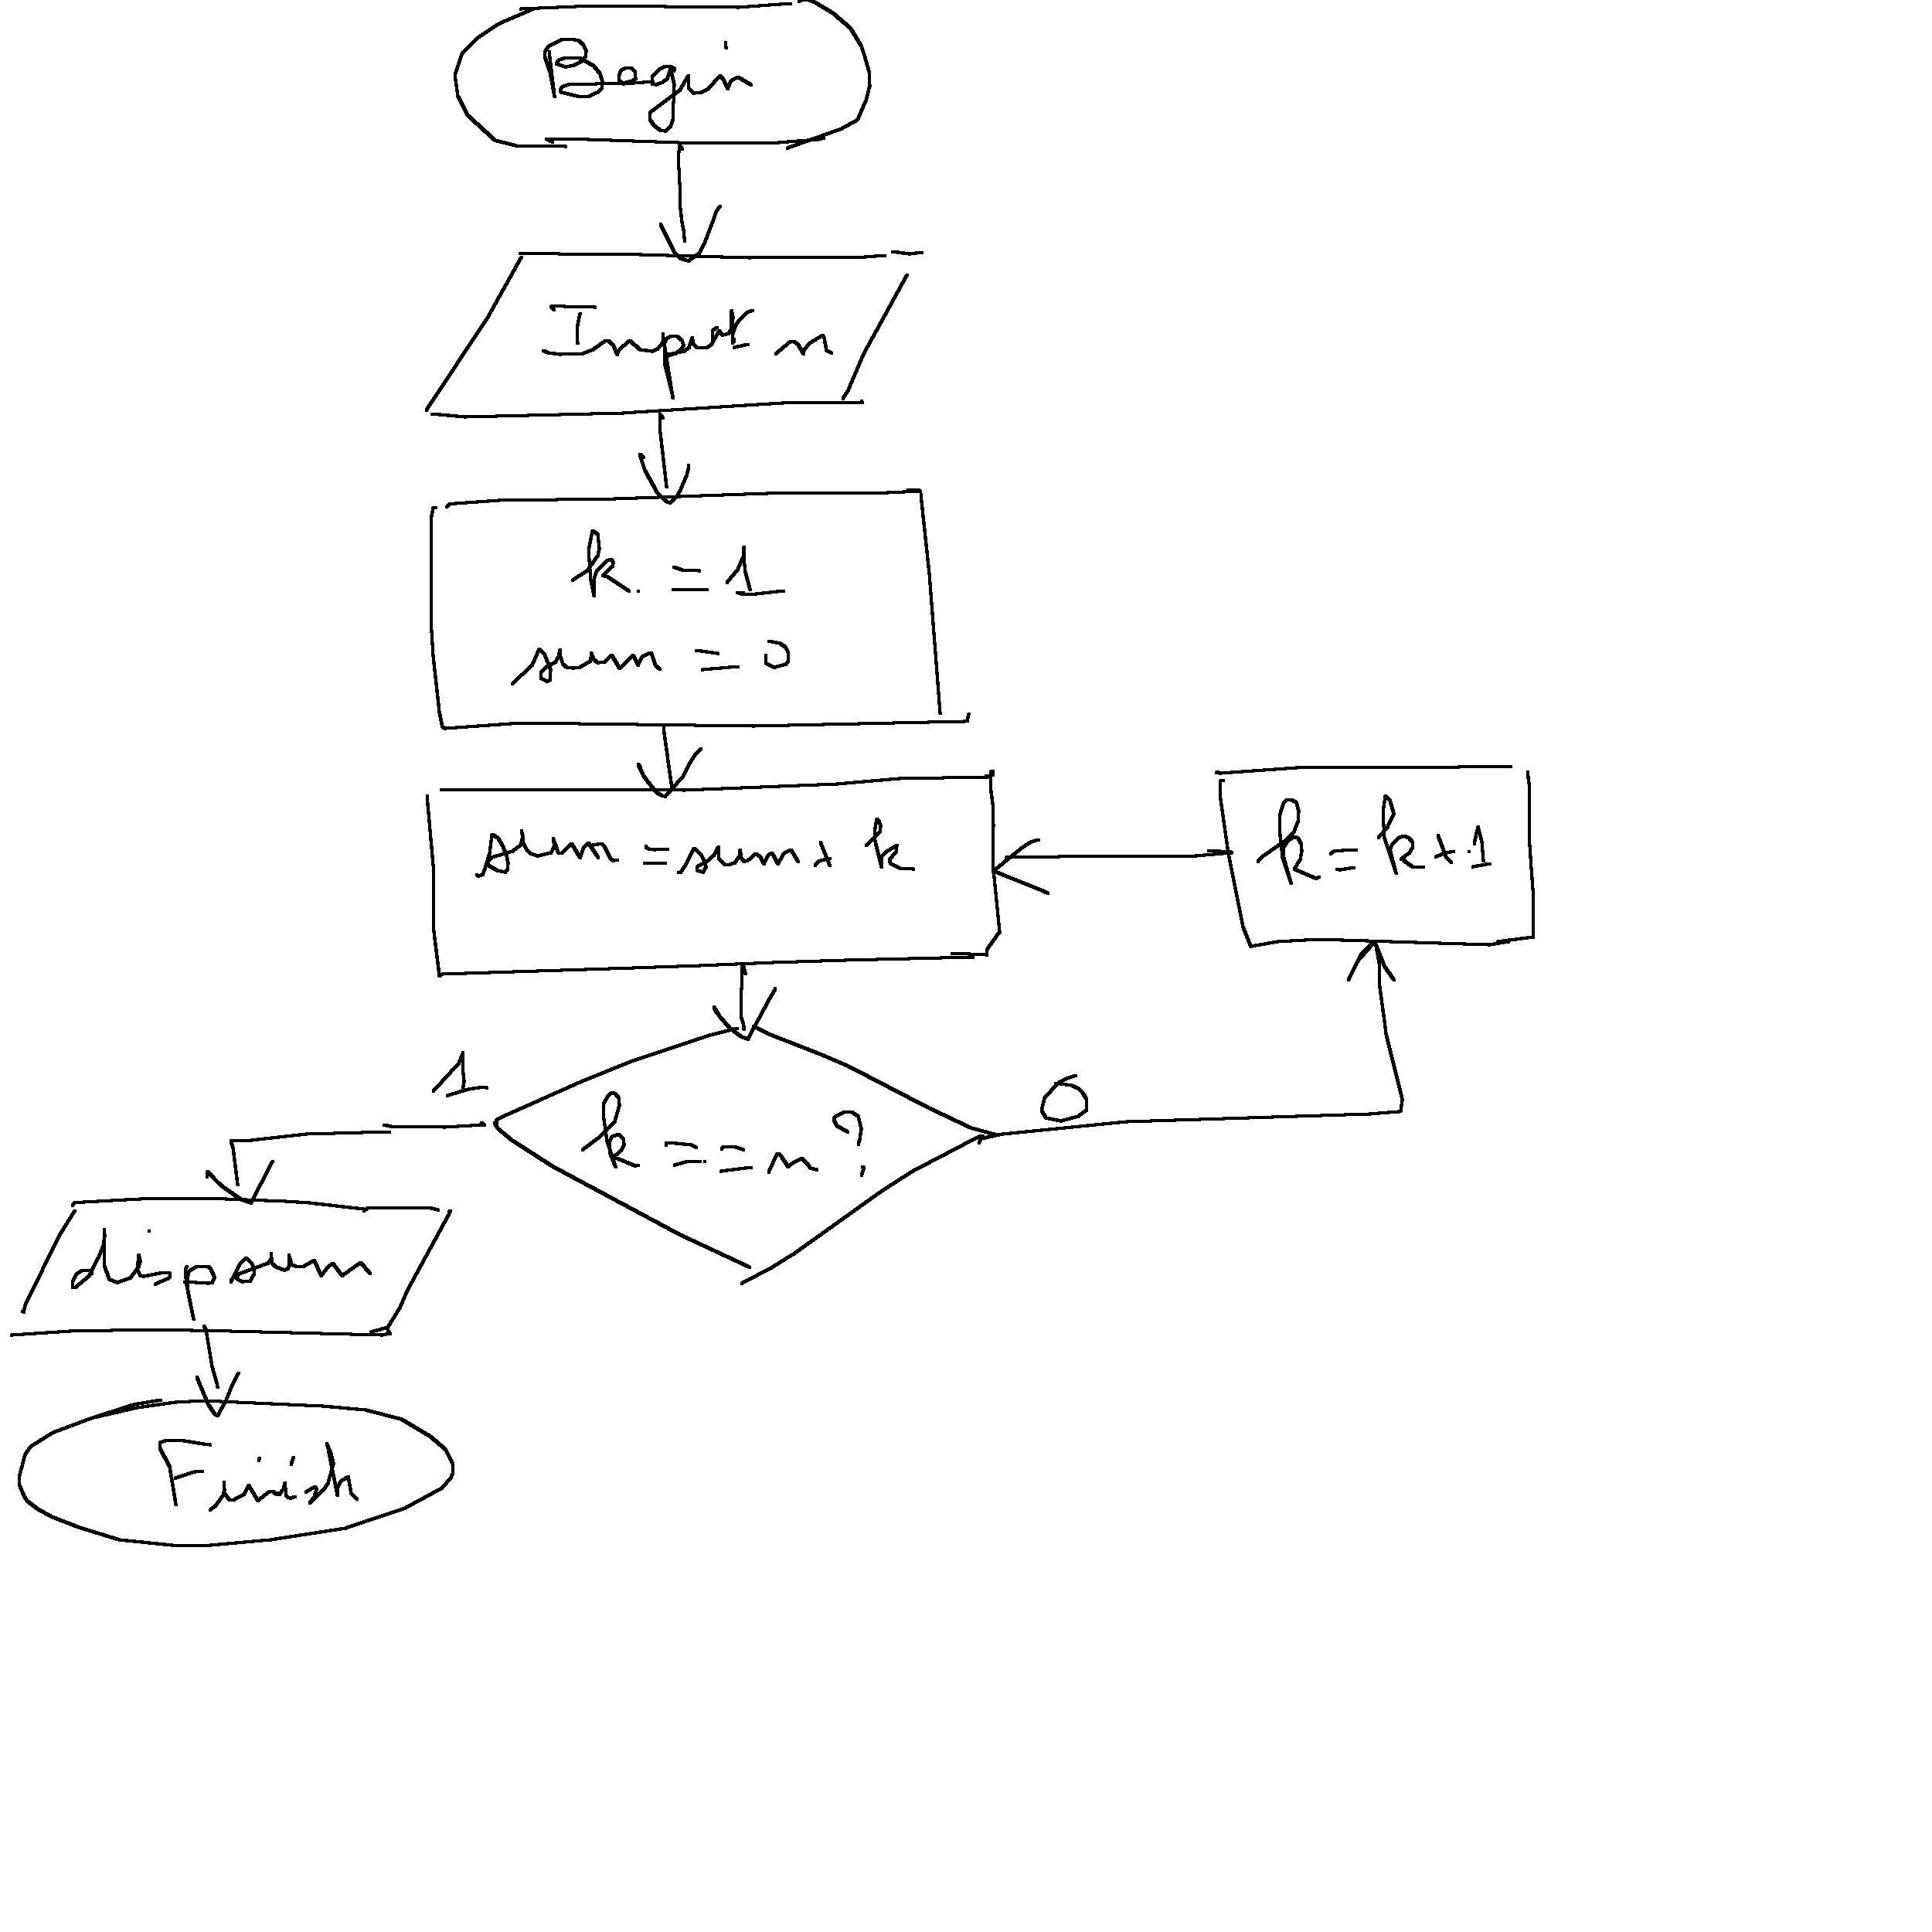 Begin
Input n
k = 1
sum = 0
sum = sum + k
k = k + 1
1
k == n ?
0
disp sum
Finish